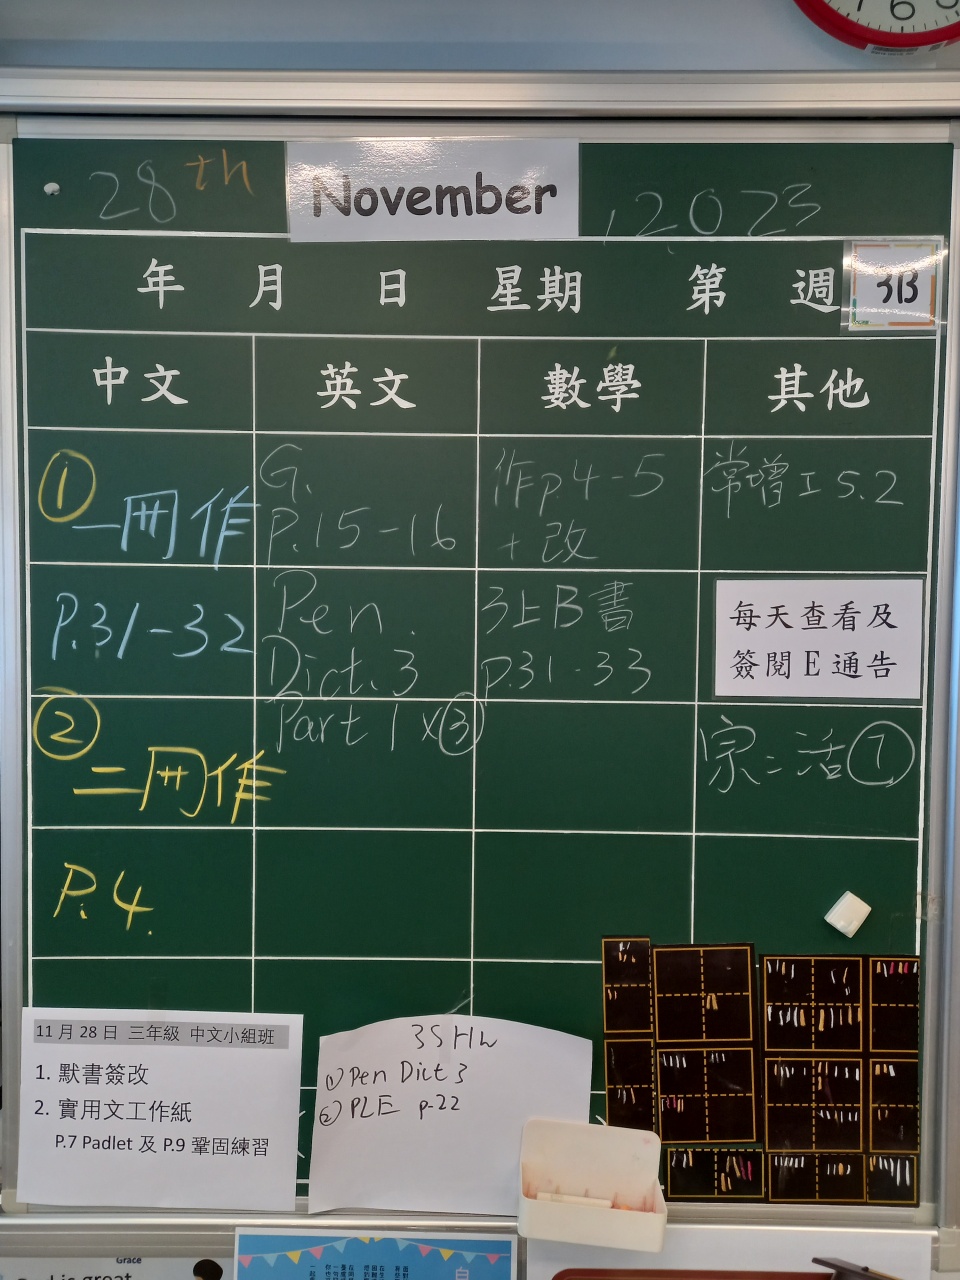 28th November, 2023
年 月 日 星期 第 週 3B
中文 英文 數學 其他
① 一冊作
P.31-32
② 二冊作
P.4.
G.
P.15-16
Pen.
Dict. 3
Part 1 x③
作p4-5
+改
3上B書
p.31-33
常增工5.2
每天查看及
簽閱E通告
宗:活⑦
11月28日 三年級 中文小組班
1. 默書簽改
2. 實用文工作紙
P.7 Padlet 及 P.9 鞏固練習
3S HW
① Pen Dict 3
② PLE p.22
Grace
great